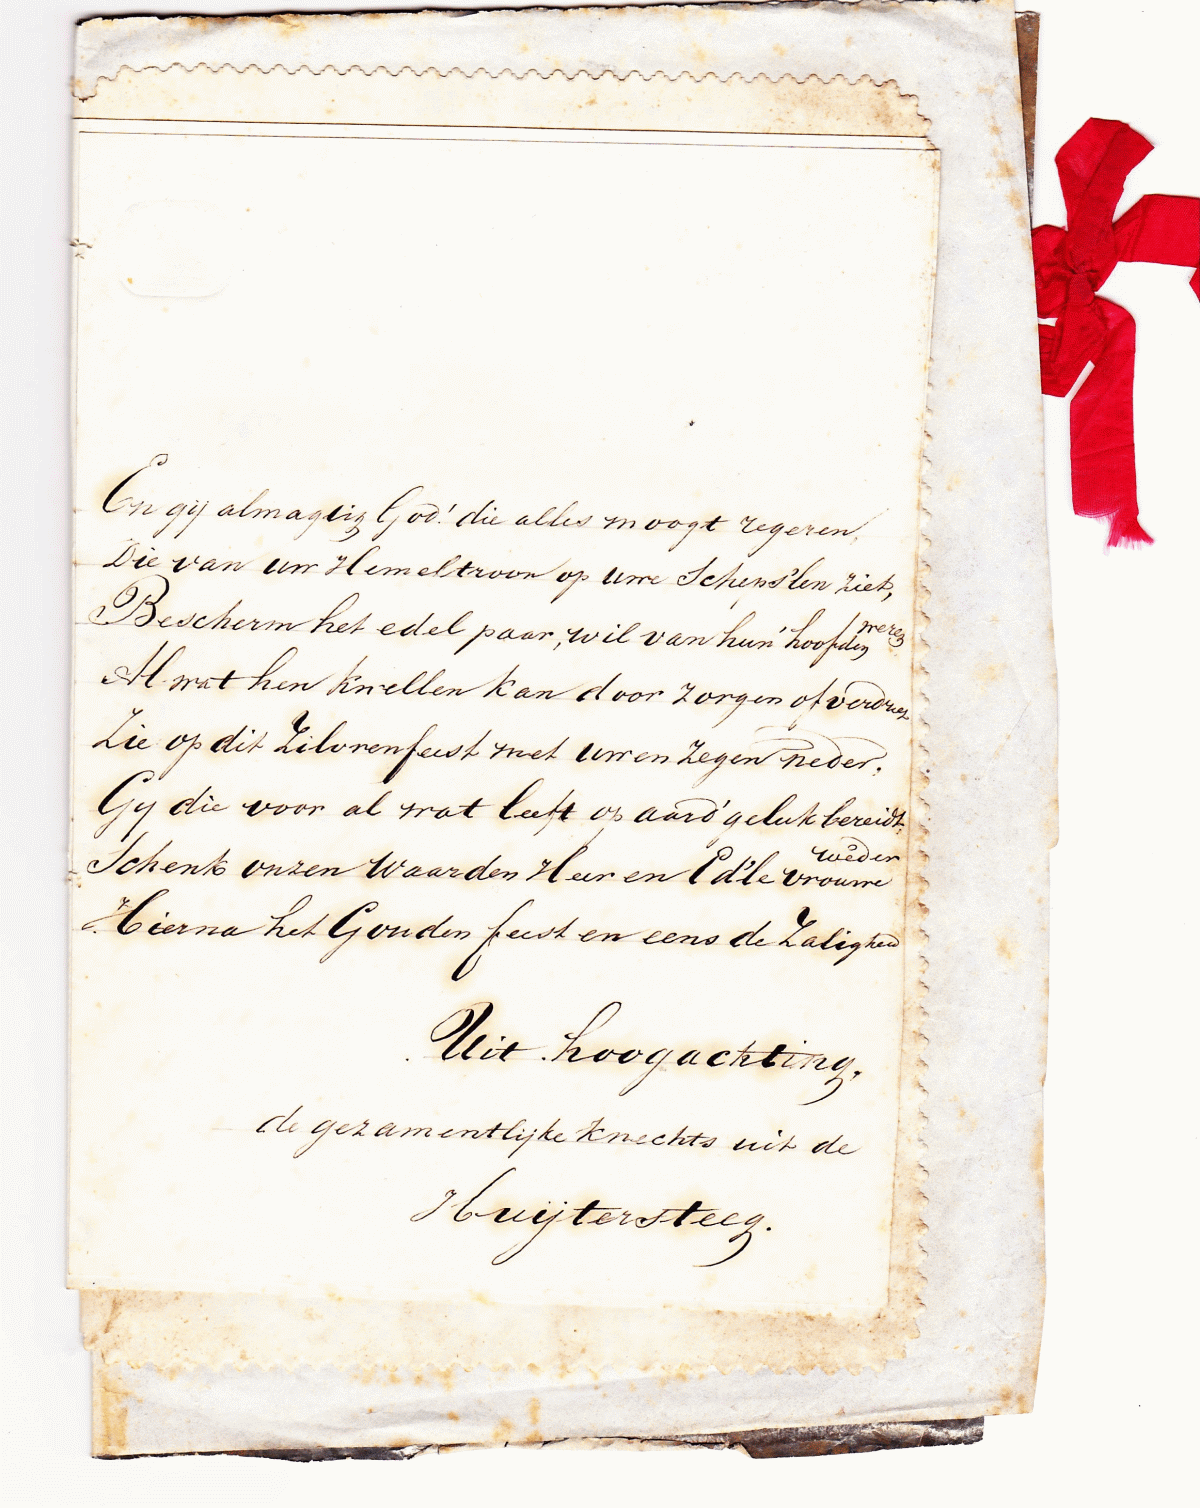 En gij almagtig God! die alles moogt regeren,
Die van uw Hemeltroon op uwe Scheps'len ziet,
Bescherm het edel paar, wil van hun' hoofden weren
Al wat hen knellen kan door zorgen of verdriet
Zie op dit Zilvrenfeest met uwen zegen neder,
Gy die voor al wat leeft op aard' geluk bereidt,
Schenk onzen Waarden Heer en Ed'le vrouwe weder
Hierna het Gouden feest en eens de Zaligheid
Uit hoogachting,
de gezamentlijke knechts uit de
Huijtersteeg.